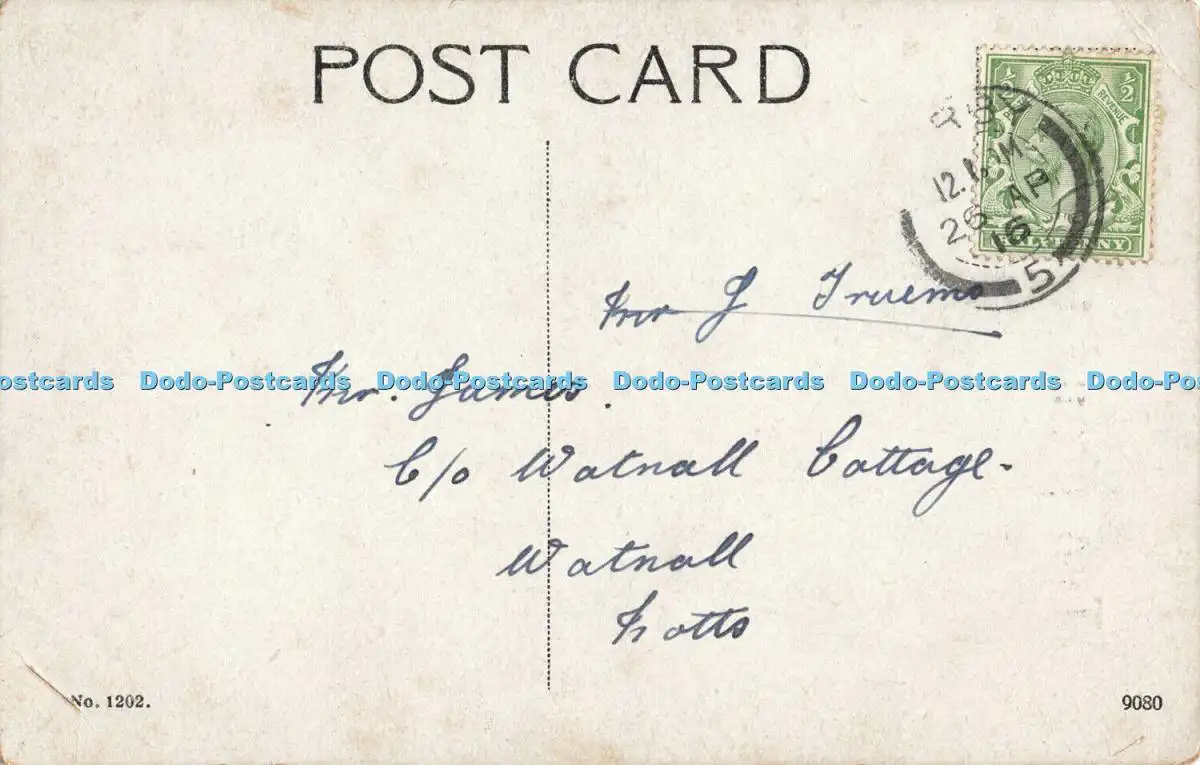 POST CARD
½ REVENUE ½
12.
26 AP
16
5
Mr G Truems
Dodo-Postcards Dodo-Postcards Dodo-Postcards Dodo-Postcards
Mr. James.
C/o Watnall Cottage.
Watnall
Notts
No. 1202.
9080